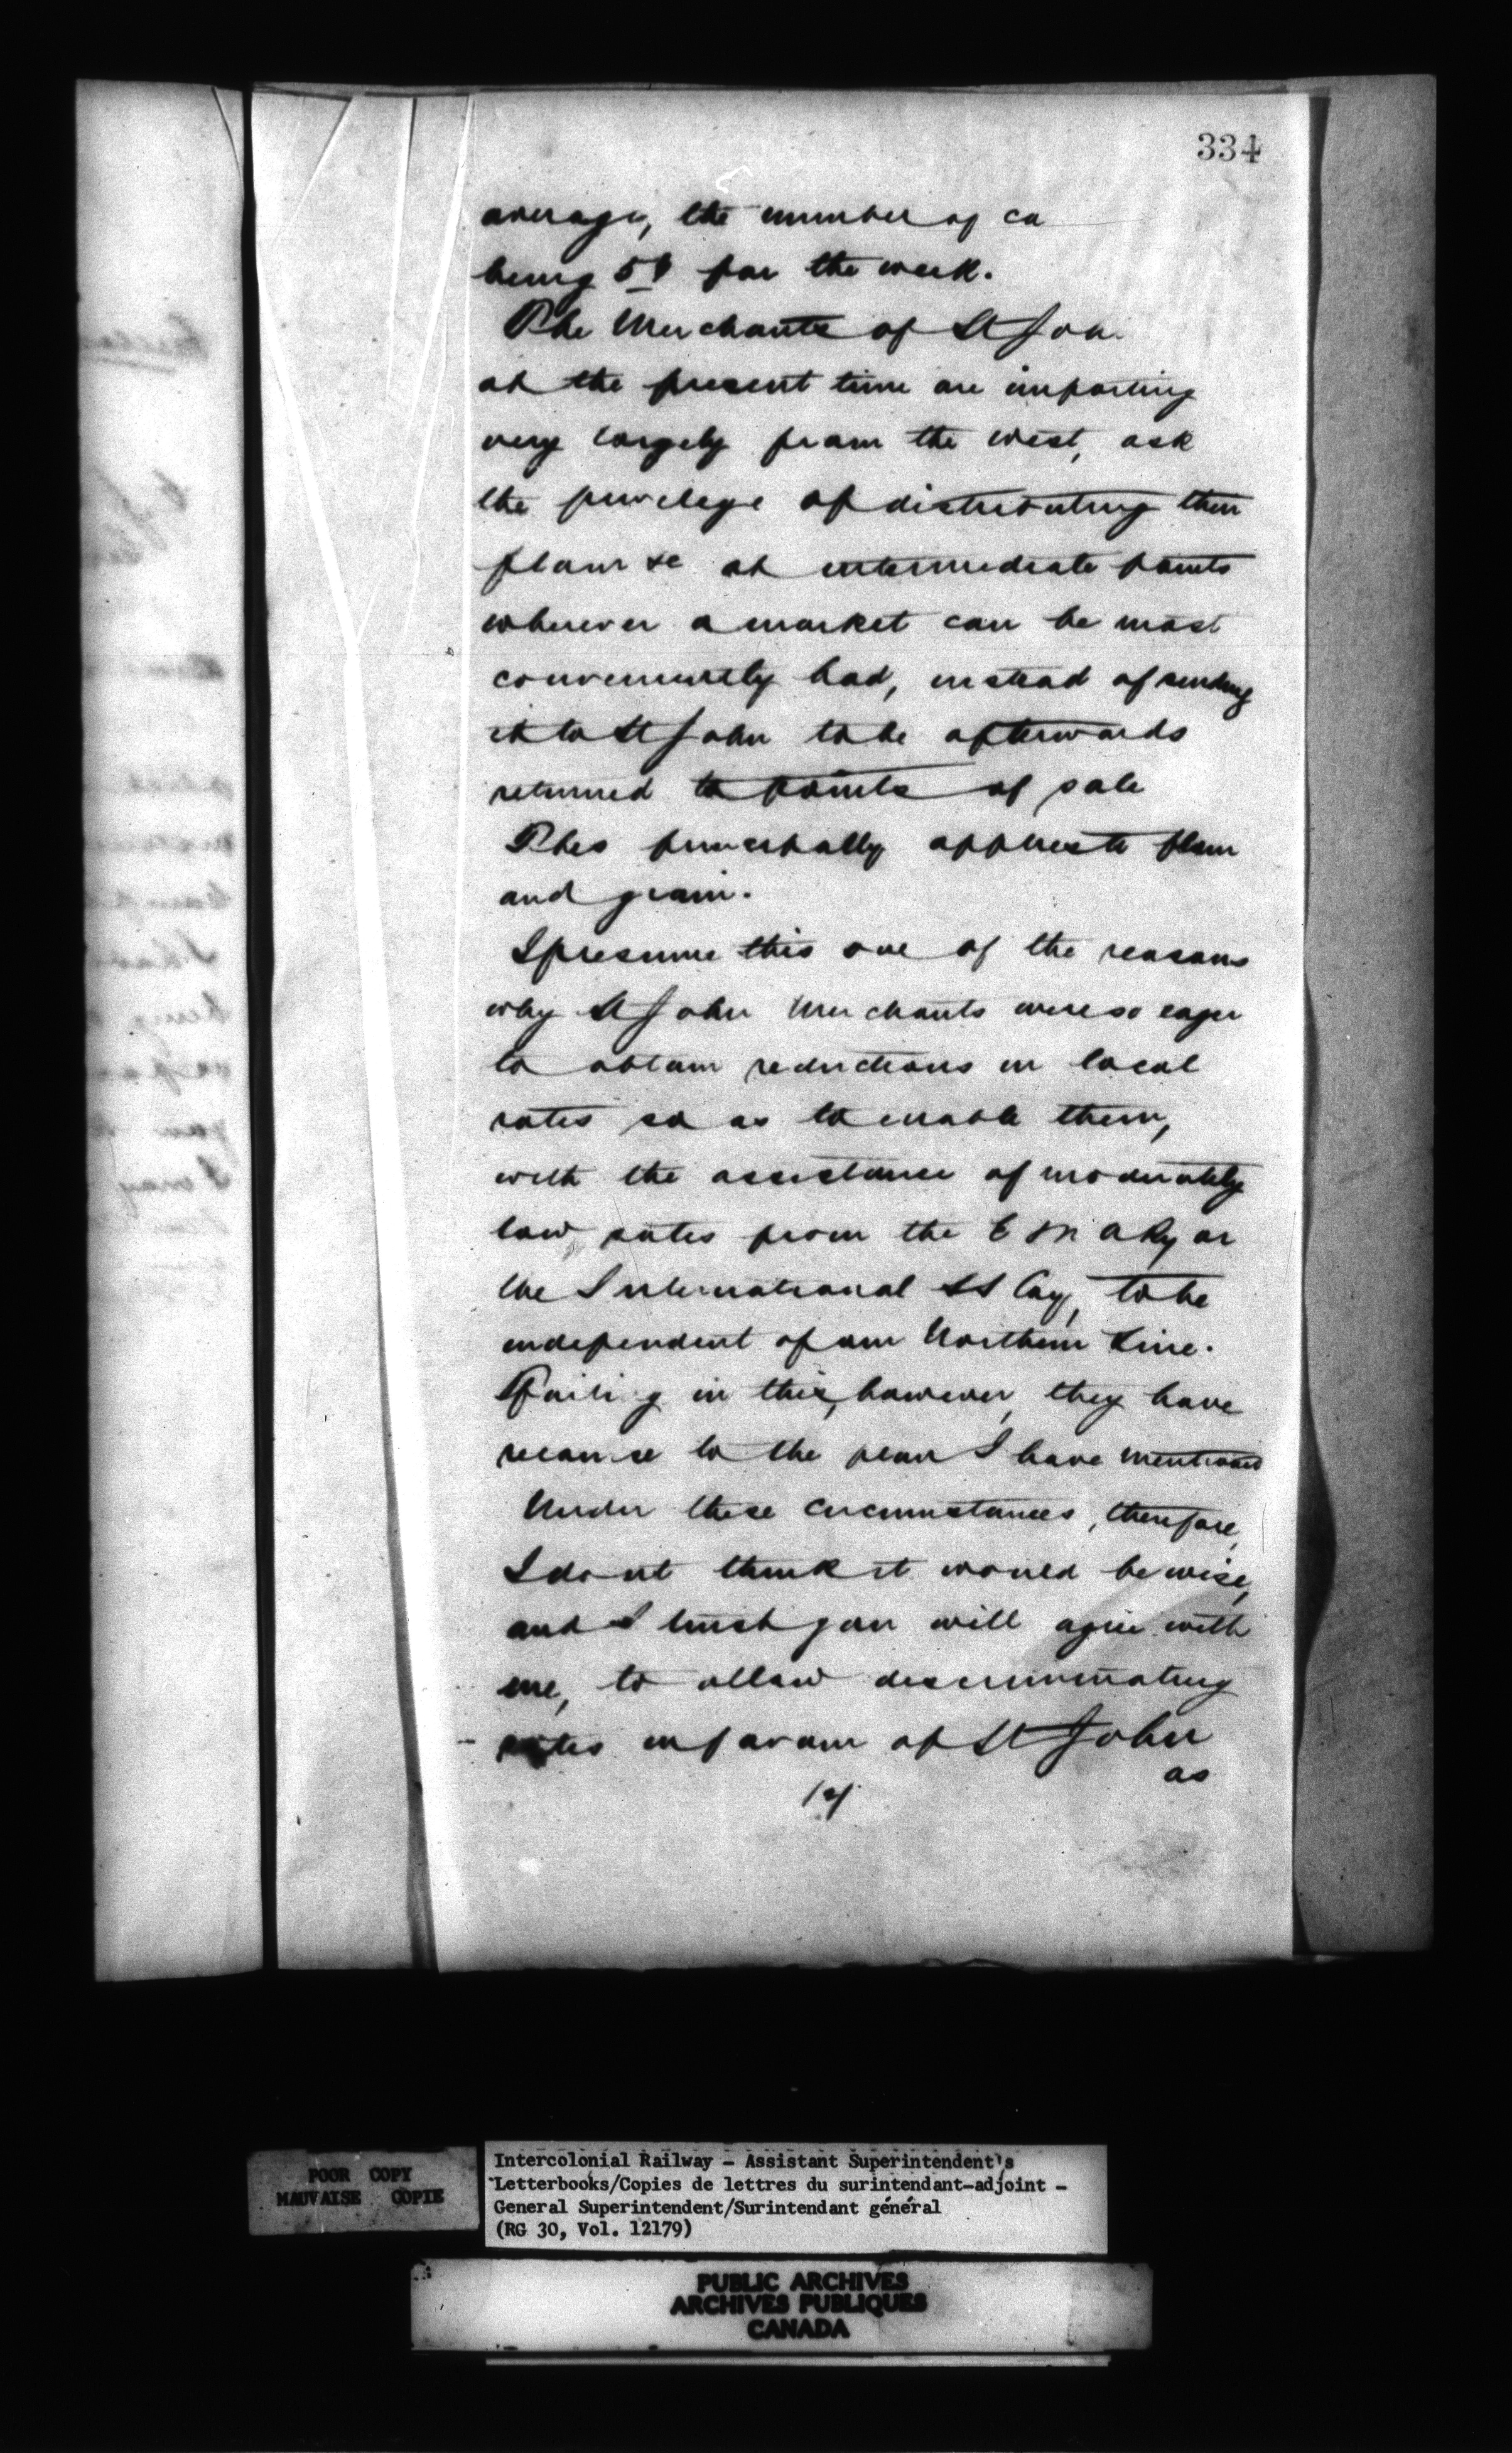 334
average, the number of ca
being for the week.
The Merchants of St Joh
at the present time are importing
very largely from the west, ask
the privelege of distributing their
flour &c at intermediate points
wherever a market can be most
conveniently had, instead of sending
it to St John to be afterwards
returned to points of sale
This principally applies to flour
and grain.
I presume this one of the reasons
why St John Merchants were so eager
to obtain reductions in local
rates so as to enable them,
with the assistance of moderately
low rates from the E & N A Ry or
the International SS Coy, to be
independent of our Northern Line.
Failing in this, however, they have
recourse to the plan I have mentioned
Under these circumstances, therefore,
I dont think it would be wise,
and I trust you will agree with
me, to allow descriminating
rates in favour of St John
as
POOR COPY
MAUVAISE COPIE
Intercolonial Railway - Assistant Superintendent's
Letterbooks/Copies de lettres du surintendant-adjoint -
General Superintendent/Surintendant général
(RG 30, Vol. 12179)
PUBLIC ARCHIVES
ARCHIVES PUBLIQUES
CANADA